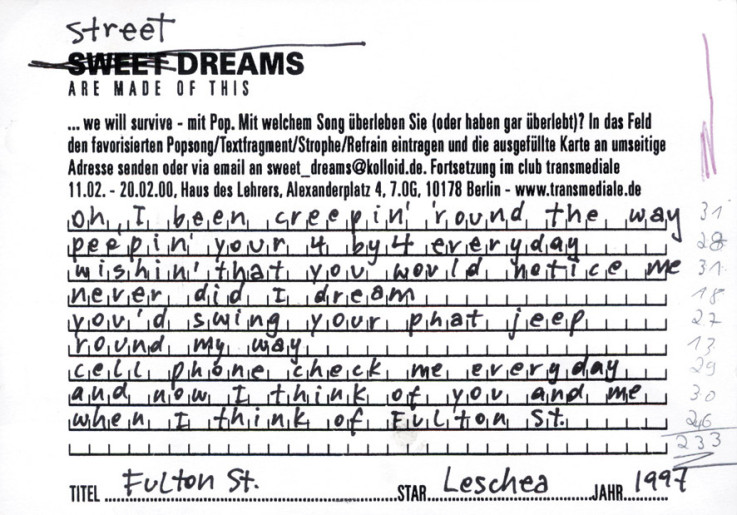 street
SWEET DREAMS
ARE MADE OF THIS
... we will survive - mit Pop. Mit welchem Song überleben Sie (oder haben gar überlebt)? In das Feld
den favorisierten Popsong/Textfragment/Strophe/Refrain eintragen und die ausgefüllte Karte an umseitige
Adresse senden oder via email an sweet_dreams@kolloid.de. Fortsetzung im club transmediale
11.02. - 20.02.00, Haus des Lehrers, Alexanderplatz 4, 7.OG, 10178 Berlin - www.transmediale.de
oh, I been creepin' 'round the way 31
peepin' your 4 by 4 everyday 28
wishin' that you would notice me 31
never did I dream 18
you'd swing your phat jeep 27
round my way 13
cell phone check me everyday 29
and now I think of you and me 30
when I think of Fulton St. 26
233
TITEL Fulton St. STAR Leschea JAHR 1997